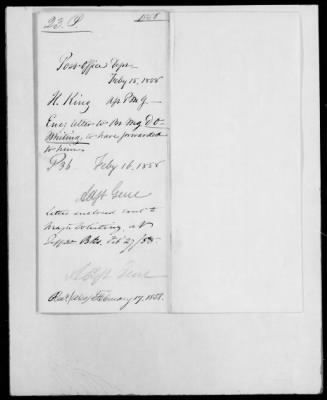 23. P. 1858
Post Office Dept
Feby 15, 1858
H. King
Enc: letter to Bv Maj D. O.
Whiting, to have forwarded
to him.
P 36 Feby 16, 1858
Adjt Genl
Letter enclosed sent to
Major Whiting, at
Feb 27/58
Adjt Genl
February 17, 1858.